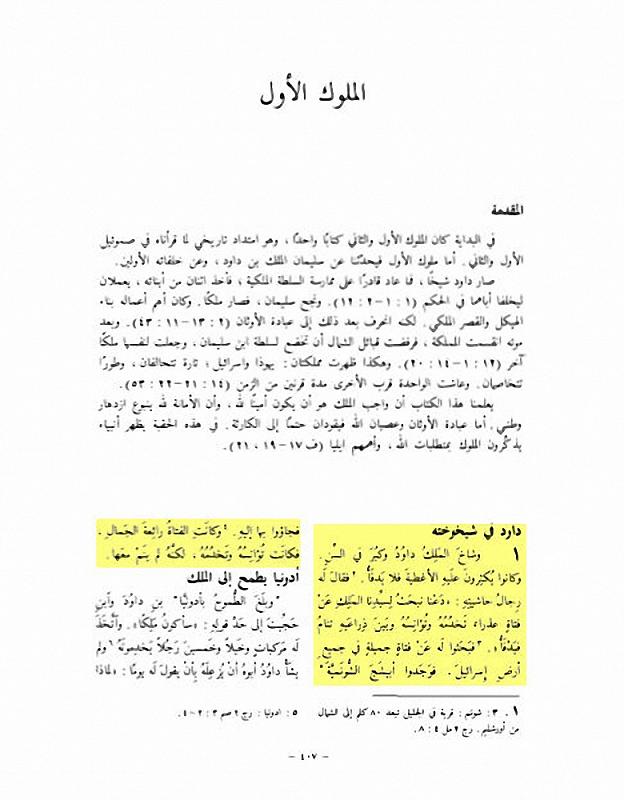 الملوك الأول
المقدمة
في البداية كان الملوك الأول والثاني كتابًا واحدًا ، وهو امتداد تاريخي لما قرأناه في صموئيل
الأول والثاني. أما ملوك الأول فيحدّثنا عن سليمان الملك بن داود ، وعن خلفائه الأولين.
صار داود شيخًا ، فما عاد قادرًا على ممارسة السلطة الملكية ؛ فأخذ اثنان من أبنائه ، يعملان
ليخلفا أباهما في الحكم (١ : ١-٢ : ١٢). ونجح سليمان ، فصار ملكًا. وكان أهم أعماله بناء
الهيكل والقصر الملكي. لكنه انحرف بعد ذلك إلى عبادة الأوثان (٢ : ١٣-١١ : ٤٣). وبعد
موته انقسمت المملكة ، فرفضت قبائل الشمال أن تخضع لسلطة ابن سليمان ، وجعلت لنفسها ملكًا
آخر (١٢ : ١-١٤ : ٢٠). وهكذا ظهرت مملكتان : يهوذا واسرائيل ؛ تارة تتحالفان ، وطورًا
تتخاصمان. وعاشت الواحدة قرب الأخرى مدة قرنين من الزمن (١٤ : ٢١-٢٢ : ٥٣).
يعلمنا هذا الكتاب أن واجب الملك هو أن يكون أمينًا لله ، وأن الأمانة لله ينبوع ازدهار
وطني. أما عبادة الأوثان وعصيان الله فيقودان حتمًا إلى الكارثة. في هذه الحقبة يظهر أنبياء
يذكّرون الملوك بمتطلبات الله ، وأهمهم ايليا (ف ١٧-١٩ ، ٢١).
دارد في شيخوخته
١ وشاخَ المَلِكُ داوُدُ وكَبِرَ في السِّنِّ.
وكانوا يُكثِرونَ علَيهِ الأغطيةَ فلا يَدفَأُ. ٢فقالَ لَه
رِجالُ حاشيتِهِ : «دَعْنا نبحَثُ لِسيِّدِنا المَلِكِ عَنْ
فتاةٍ عذراءَ تَخدُمُهُ وتُؤانِسُهُ وبَينَ ذِراعَيهِ تنامُ
فيَدْفأُ». ٣فبَحَثوا لَه عَنْ فتاةٍ جميلةٍ في جميعِ
أرضِ إِسرائيلَ. فوَجَدوا أبيشَجَ الشُّونَميَّةَ
فجاؤوا بِها إليهِ. ٤وكانَتِ الفتاةُ رائِعةَ الجَمالِ ،
فكانَت تُؤانِسُهُ وتَخدُمُهُ ، لكنَّهُ لم يَنَمْ معَها.
أدرنيا يطمح إلى الملك
٥وبلَغَ الطُّموحُ بأدونيَّا بنِ داوُدَ وابنِ
حَجِّيثَ إلى حَدِّ قولِهِ : «سأكونُ مَلِكًا». وأتَّخَذَ
لَه مَركباتٍ وخَيلاً وخَمسينَ رَجُلاً يَخدِمونَهُ ٦ولم
يشَأْ داوُدُ أبوهُ أنْ يُزعِلَهُ بأنْ يقولَ لَه يومًا : «لماذا
١. ٣: شونم : قرية في الجليل تبعد ٨٠ كلم إلى الشمال
من أورشليم. رج ٢ مل ٤ : ٨.
٥ : ادونيا : رج ٢ صم ٣ : ٢-٤.
– ٤٠٧ –